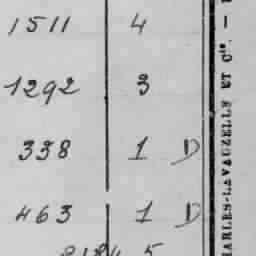 1511 4
1292 3
338 1 D
463 1 D
5
HARLES-LAVAUZELLE ET Cie. —